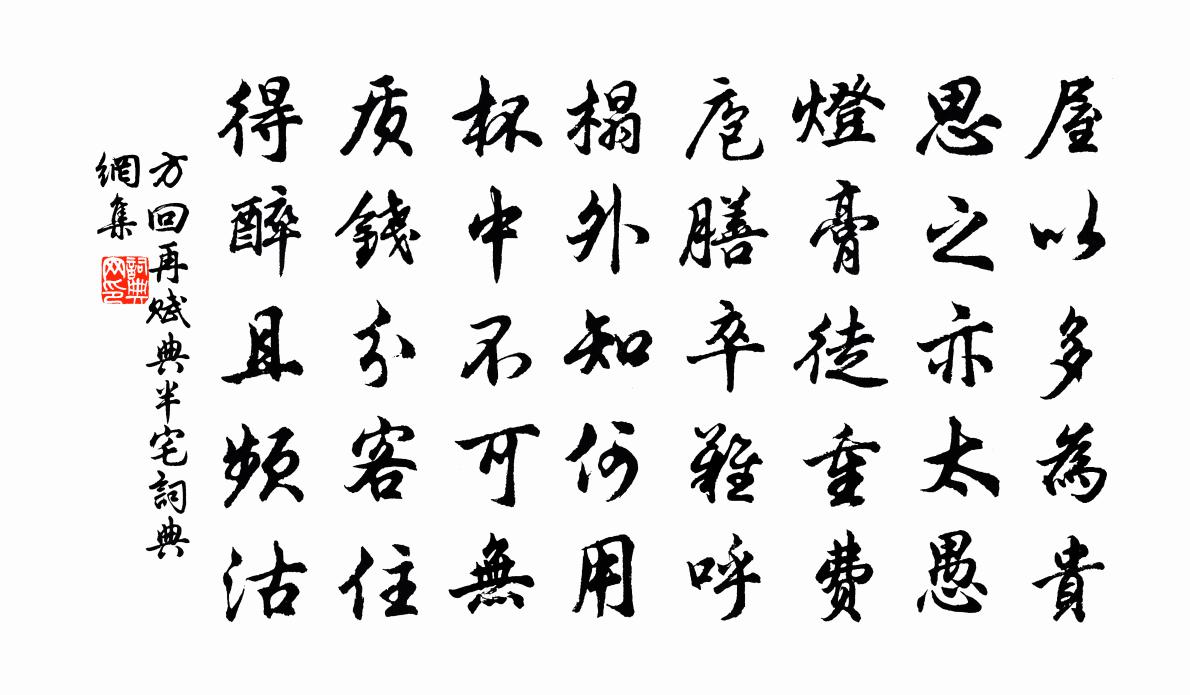 屋以多為貴
思之亦太愚
燈膏徒重費
庖膳卒難呼
榻外知何用
杯中不可無
质錢分客住
得醉且頻沽
方回再赋典半宅詞典
網集
詞典
网印